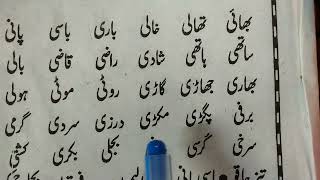 بھائی تھالی خالی باری باسی پانی
ساتھی ہاتھی شادی راضی قاضی بالی
بھاری جھاڑی گاڑی روٹی موٹی ہولی
برفی پگڑی مکڑی درزی سردی گرمی
سرخی کرسی بجلی بکری کشتی